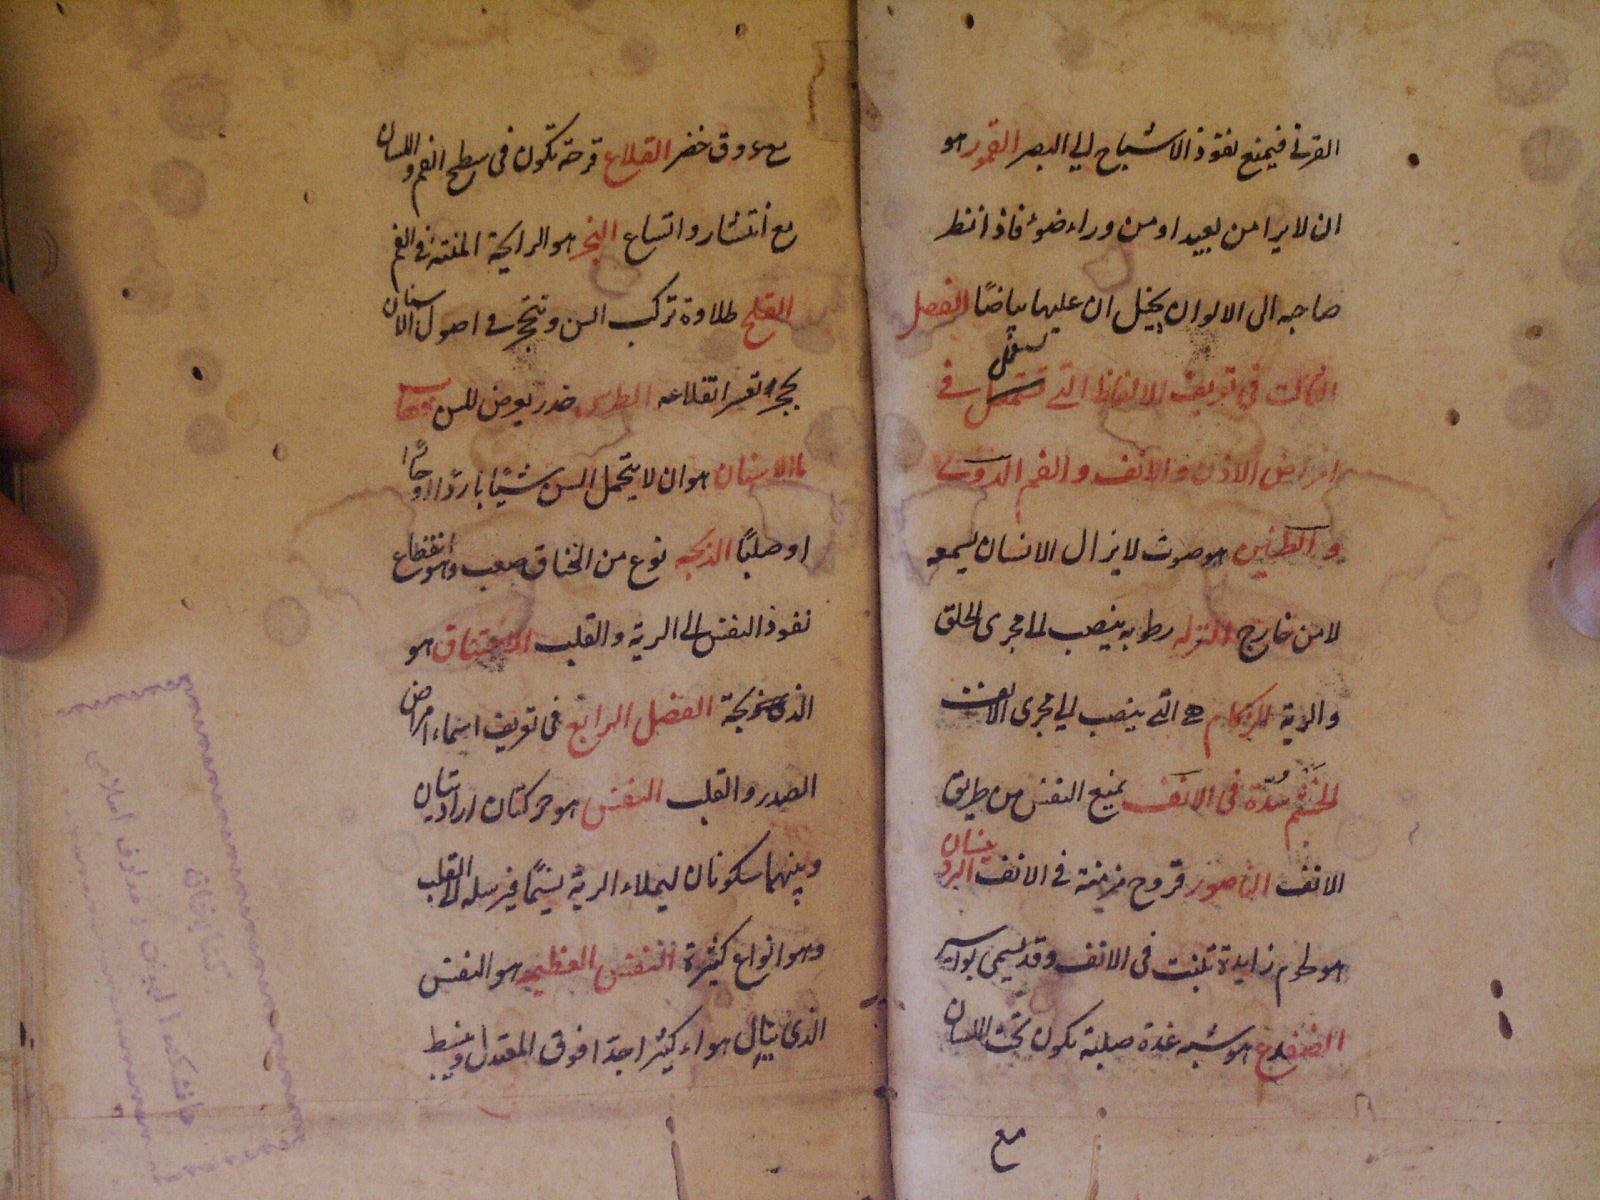 القرني فيمنع نفوذ الاشباح الي البصر القمور هو
ان لا يرا من بعيد او من وراء ضوء فاذا نظر
صاحبه الى الالوان يخيل ان عليها بياضًا الفصل
الثالث فى تعريف الالفاظ التي تستعمل في
امراض الاذن والانف والفم الدوي
والطنين هو صوت لا يزال الانسان يسمعه
لا من خارج النزله رطوبه ينصب الى مجرى الحلق
والرية الزكام هي التي ينصب الي مجرى الانف
الخشم سُدّة فى الانف يمنع النفس من طريق
الانف الناصور قروح مزمنة فى الانف
هو لحم زايدة تنبت فى الانف وقد يسمى بواسير
الضفدع هو شبه غدة صلبة تكون تحت اللسان
مع
مع عروق خضر القلاع قرحة تكون فى سطح الفم واللسان
مع انتشار واتساع البخر هو الرايحة المنتنة فى الفم
القلح طلاوة تركب السن وتتحجر فى اصول الاسنان
تعسر انقلاعه الضرس خدر يعرض للسن
الاسنان هو ان لا يتحمل السن شيئًا باردًا او حارًا
او صلبًا الذبحه نوع من الخناق صعب وهو انقطاع
نفوذ النفس الى الرية والقلب الاختناق هو
الذبحة الفصل الرابع فى تعريف اسماء امراض
الصدر والقلب النفس هو حركتان اراديتان
وبينهما سكونان ليملاء الرية نسيمًا فيرسله الى القلب
وهو انواع كثيرة النفس العظيم هو النفس
الذى ينال هواء كثيرا جدا فوق المعتدل